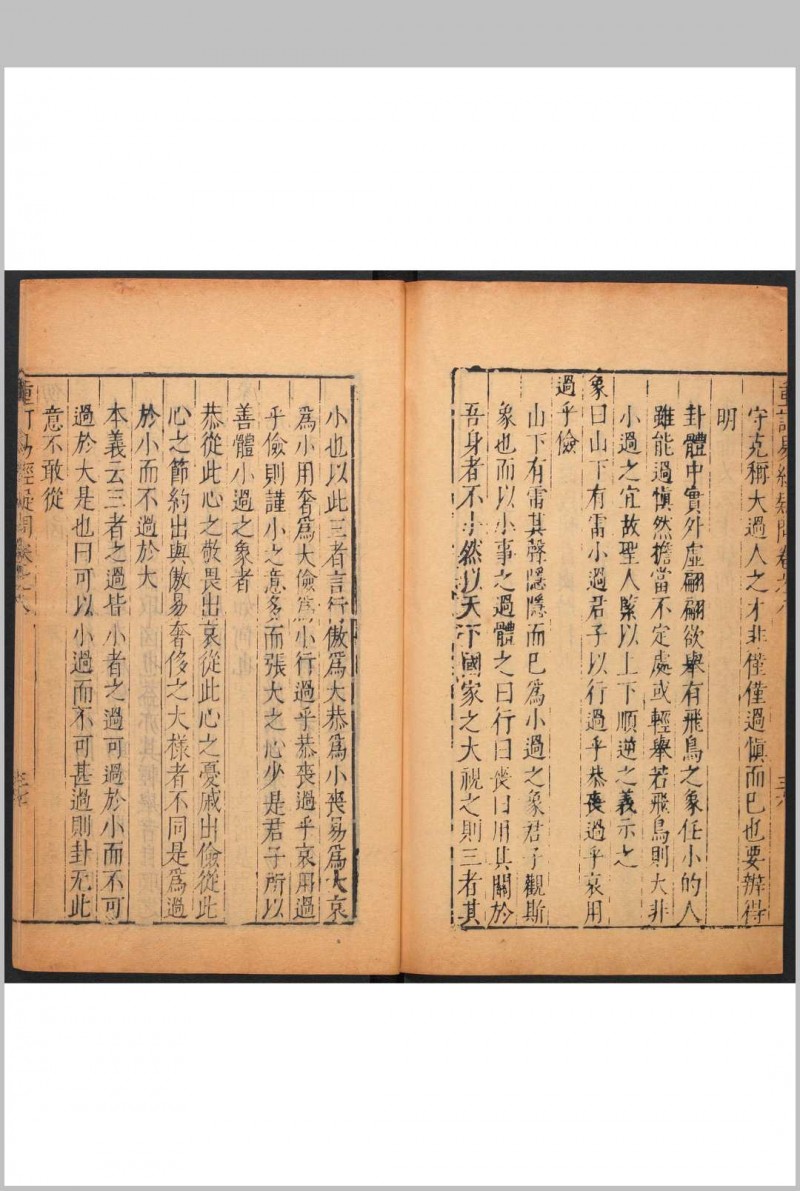 重訂易經疑問卷之八
三六
守克稱大過人之才非僅僅過慎而巳也要辦得
明
卦體中實外虛翩翩欲舉有飛鳥之象任小的人
雖能過慎然擔當不定處或輕舉若飛鳥則大非
小過之宜故聖人槩以上下順逆之義示之
象曰山下有雷小過君子以行過乎恭喪過乎哀用
過乎儉
山下有雷其聲隱隱而巳為小過之象君子觀斯
象也而以小事之過體之曰行曰喪曰用其關於
吾身者不小然以天下國家之大視之則三者其
小也以此三者言行傲爲大恭爲小喪易爲大哀
爲小用奢爲大儉爲小行過乎恭喪過乎哀用過
乎儉則謹小之意多而張大之心少是君子所以
善體小過之象者
恭從此心之敬畏出哀從此心之憂戚出儉從此
心之節約出與傲易奢侈之大樣者不同是爲過
於小而不過於大
本義云三者之過皆小者之過可過於小而不可
過於大是也曰可以小過而不可甚過則卦无此
意不敢從
重訂易經疑問卷之八
三七